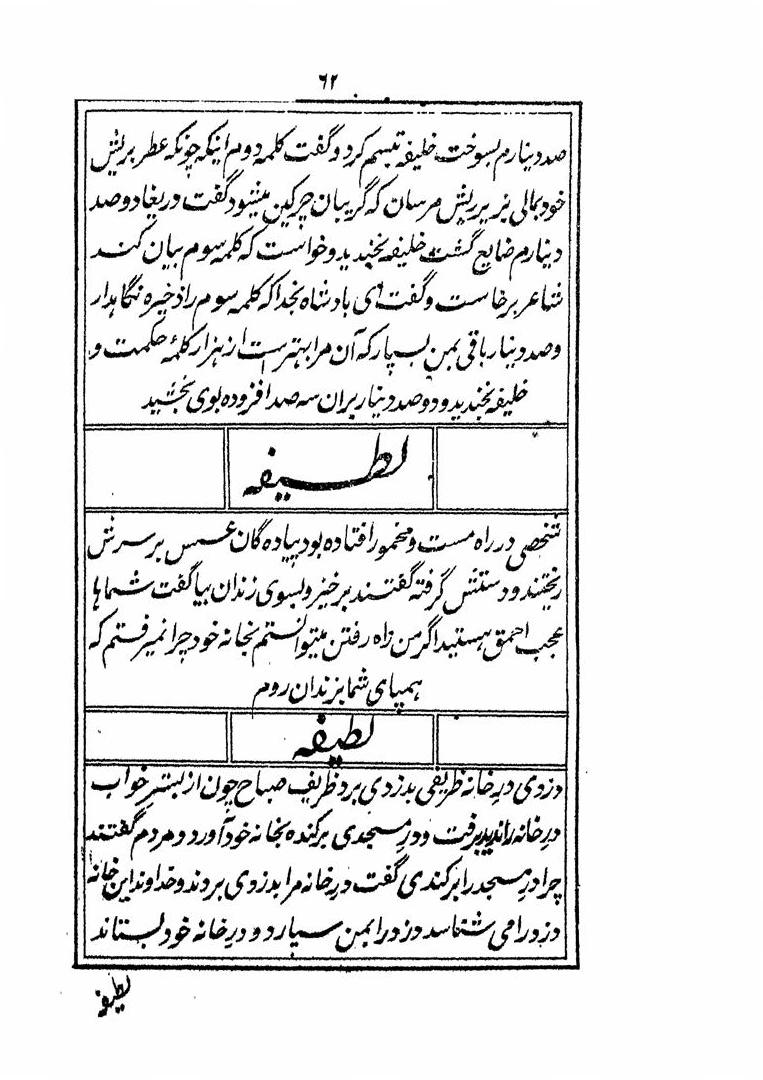 ۶۲
صد دینارم بسوخت خلیفه تبسم کرد و گفت کلمه دوم اینکه چونکه عطر بریش
خود بمالی بزیر ریش مرسان که گریبان چرکین میشود گفت دریغا دو صد
دینارم ضایع گشت خلیفه بخندید و خواست که کلمه سوم بیان کند
شاعر برخاست و گفت ای بادشاه بخدا که کلمه سوم را ذخیره نگاهدار
و صد دینار باقی بمن بسپار که آن مرا بهتر است از هزار کلمهٔ حکمت و
خلیفه بخندید و دو صد دینار بران سه صد افزوده بوی بخشید
لطیفه
شخصی در راه مست و مخمور افتاده بود پیاده گان عسس بر سرش
ریختند و دستش گرفته گفتند برخیز و بسوی زندان بیا گفت شماها
عجب احمق هستید اگر من راه رفتن میتوانستم بخانه خود چرا نمیرفتم که
همپای شما بزندان روم
لطیفه
دزدی در خانه ظریفی بدزدی برد ظریف صباح چون از بستر خواب
در خانه را ندید برفت و در مسجدی برکنده بخانه خود آورد و مردم گفتند
چرا در مسجد را برکندی گفت در خانه مرا بدزدی بردند و خداوند این خانه
دزد را می شناسد دزد را بمن سپارد و در خانه خود بستاند
لطیفه